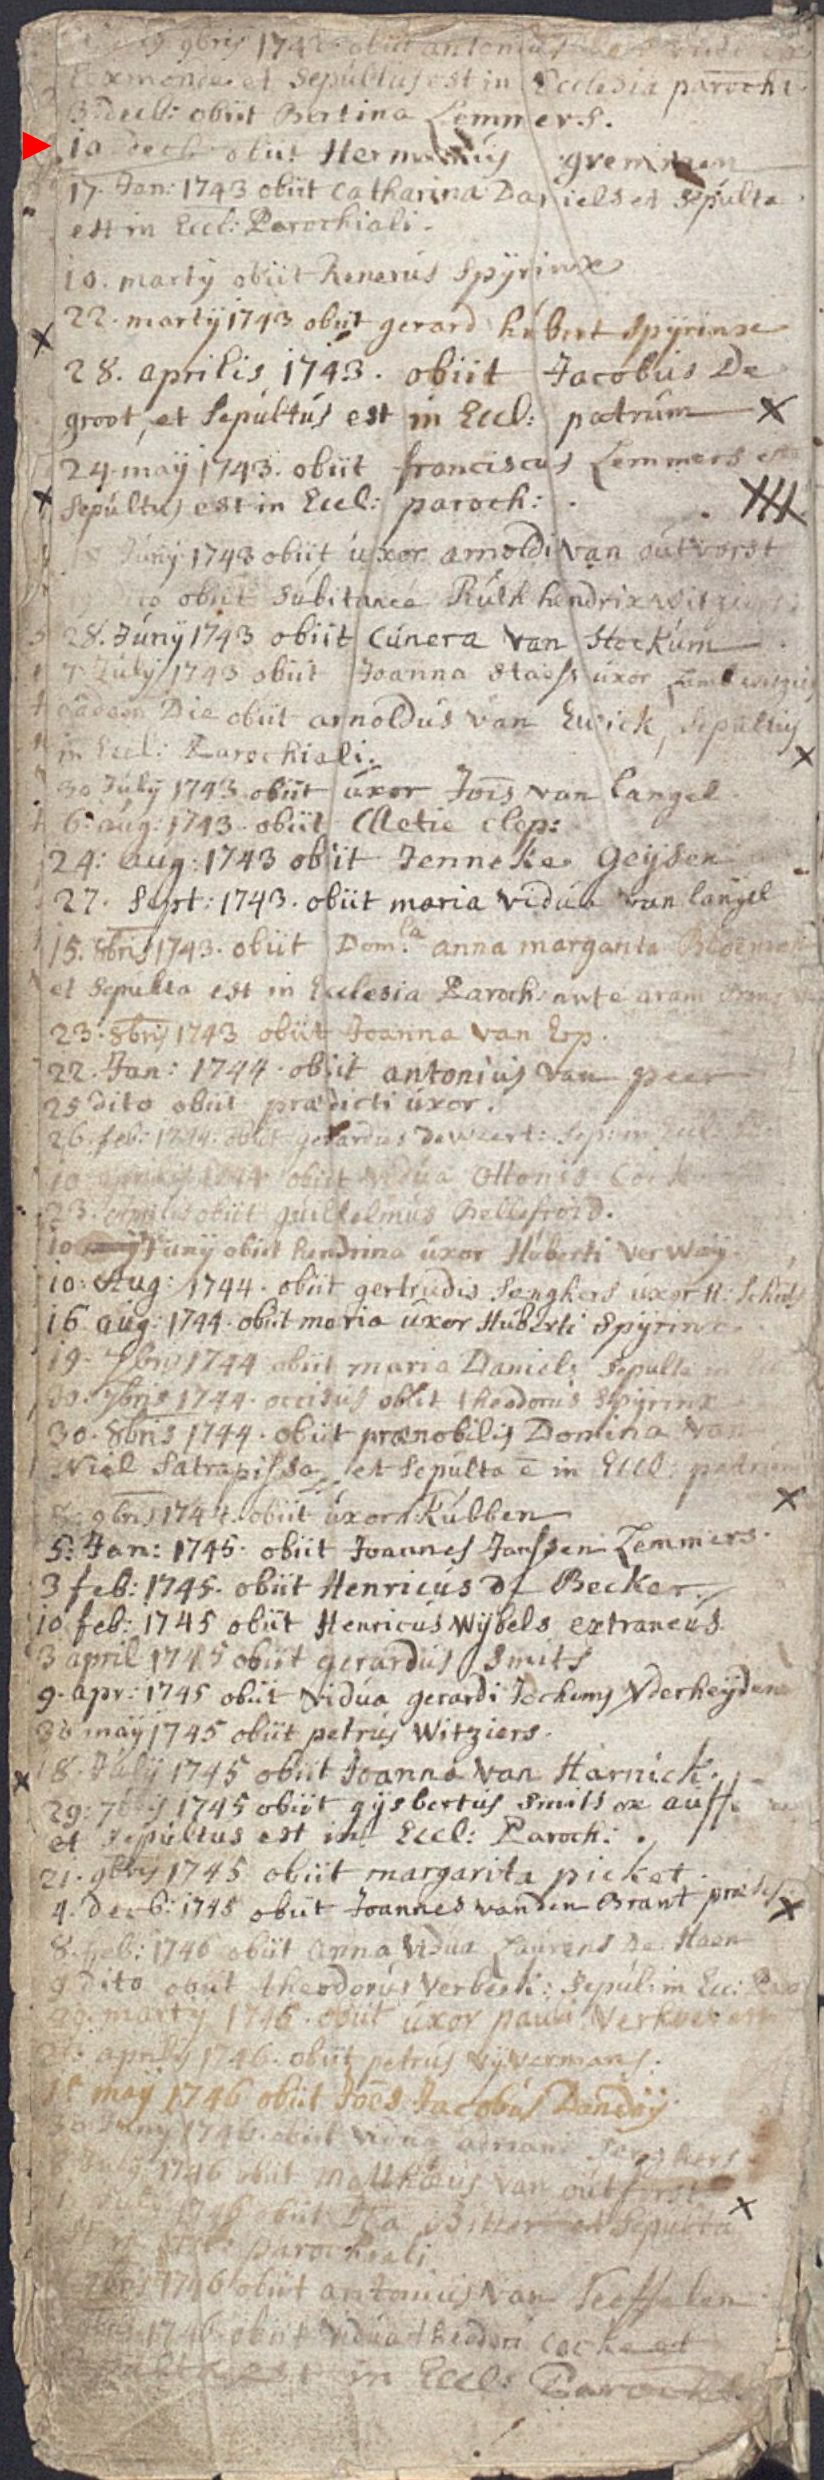 9bris 174 obiit antonius
et Sepultus est in Ecclesia paroch
3 dec: obiit Bertina Lemmers.
10 dec obiit Hermannus gremmen
17. Jan: 1743 obiit Catharina Daniels et sepulta
est in Eccl: Parochiali.
10. martÿ obiit Renerus Spÿrinx
22. martÿ 1743 obiit gerard hubert Spÿrinx
28. aprilis 1743. obiit Jacobus De
groot, et Sepultus est in Eccl: patrum
24. maÿ 1743. obiit franciscus Lemmers et
Sepultus est in Eccl: paroch:
18 Junÿ 1743 obiit uxor arnoldi van outvorst
dito obiit Subitanea Ruth hendrix
28. Junÿ 1743 obiit Cunera van Stockum
7. Julÿ 1743 obiit Joanna Stass uxor
eadem Die obiit arnoldus van Ewick, Sepultus
in Eccl: Parochiali.
30 Julÿ 1743. obiit uxor Jois van langel
6. aug: 1743. obiit Metie Clop:
24: aug: 1743 obiit Jenneke Geÿsen
27. Sept: 1743. obiit maria vidua van langel
15. 8bris 1743. obiit Dom.la anna margarita
et Sepulta est in Ecclesia Paroch: ante aram
23. 8bris 1743 obiit Joanna van Erp.
22. Jan: 1744. obiit antonius van peer
25 dito obiit prædicti uxor.
26. feb: 1744. obiit gerardus de weert: Sep: in Eccl:
10 1744 obiit vidua Ottonis
23. aprilis obiit guilielmus Bellefroid.
10 Junÿ obiit hendrina uxor Huberti Verwaÿ
10: Aug: 1744. obiit gertrudis Sengkers uxor H:
16 aug: 1744. obiit maria uxor Huberti Spÿrinx
19. 7bris 1744 obiit maria Daniels Sepulta in
30. 7bris 1744. occisus obiit theodorus Spÿrinx
30. 8bris 1744. obiit prænobilis Domina van
Wiel Satrapissa, et Sepulta e in Eccl: patrum
8. 9bris 1744. obiit uxor Kubben
5: Jan: 1745. obiit Joannes Janssen Lemmers.
3 feb: 1745. obiit Henricus De Becker.
10 feb: 1745 obiit Henricus Wÿbels extraneus
3 april 1745 obiit gerardus Smits
9. apr: 1745 obiit vidua gerardi Jochems Vderheÿden
30 maÿ 1745 obiit petrus Witziers.
18. Julÿ 1745 obiit Joanna van Harnick.
29: 7bris 1745 obiit gÿsbertus Smits ex
et Sepultus est in Eccl: Paroch:
21. 9bris 1745 obiit margarita picket.
4. Decb: 1745 obiit Joannes vanden Brant
8. feb: 1746 obiit Anna vidua Laurens De Haen
9 dito obiit theodorus Verbeek: Sepul: in Ec:
29. martÿ 1746. obiit uxor pauli
aprilis 1746. obiit petrus vÿvermans.
maÿ 1746 obiit Joes Jacobus Dandoÿ
30 Junÿ 1746. obiit vidua adriani
Julÿ 1746 obiit Matthæus van outforst
Julÿ 1746 obiit et Sepulta
parochiali
7bris 1746 obiit antonius van Teeffelen
1746. obiit vidua theodori Cock et
est in Eccl: Paroch